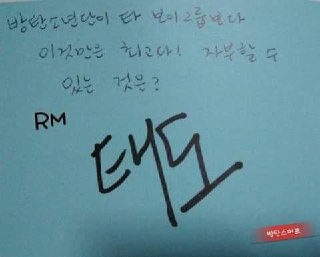 방탄소년단이 타 보이그룹보다
이것만은 최고다! 자부할 수
있는 것은?
RM
태도
방탄스마프